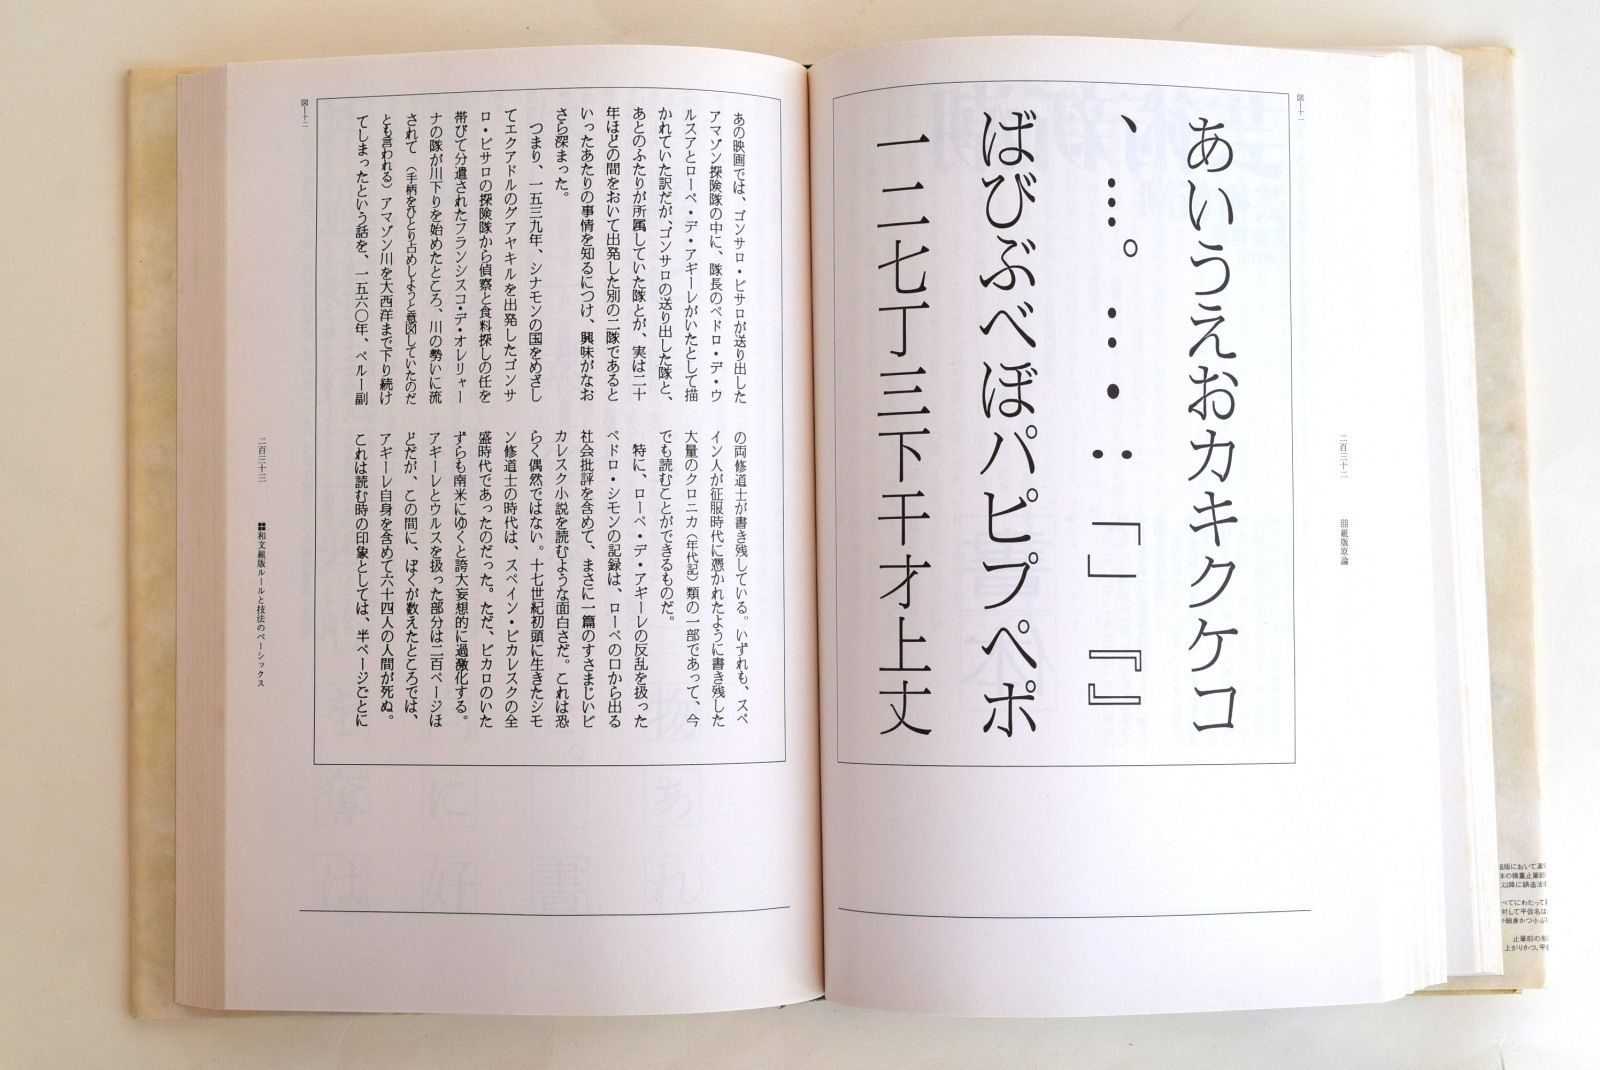 図―十一
あいうえおカキクケコ
、…。‥・：「」『』
ばびぶべぼパピプペポ
一二七丁三下干才上丈
二百三十二
組版原論
図―十二
あの映画では、ゴンサロ・ピサロが送り出した
アマゾン探険隊の中に、隊長のペドロ・デ・ウ
ルスアとローペ・デ・アギーレがいたとして描
かれていた訳だが、ゴンサロの送り出した隊と、
あとのふたりが所属していた隊とが、実は二十
年ほどの間をおいて出発した別の二隊であると
いったあたりの事情を知るにつけ、興味がなお
さら深まった。
つまり、一五三九年、シナモンの国をめざし
てエクアドルのグアヤキルを出発したゴンサ
ロ・ピサロの探険隊から偵察と食料探しの任を
帯びて分遣されたフランシスコ・デ・オレリャー
ナの隊が川下りを始めたところ、川の勢いに流
されて（手柄をひとり占めしようと意図していたのだ
とも言われる）アマゾン川を大西洋まで下り続け
てしまったという話を、一五六〇年、ペルー副
の両修道士が書き残している。いずれも、スペ
イン人が征服時代に憑かれたように書き残した
大量のクロニカ（年代記）類の一部であって、今
でも読むことができるものだ。
特に、ローペ・デ・アギーレの反乱を扱った
ペドロ・シモンの記録は、ローペの口から出る
社会批評を含めて、まさに一篇のすさまじいピ
カレスク小説を読むような面白さだ。これは恐
らく偶然ではない。十七世紀初頭に生きたシモ
ン修道士の時代は、スペイン・ピカレスクの全
盛時代であったのだった。ただ、ピカロのいた
ずらも南米にゆくと誇大妄想的に過激化する。
アギーレとウルスを扱った部分は二百ページほ
どだが、この間に、ぼくが数えたところでは、
アギーレ自身を含めて六十四人の人間が死ぬ。
これは読む時の印象としては、半ページごとに
二百三十三
和文組版ルールと技法のベーシックス